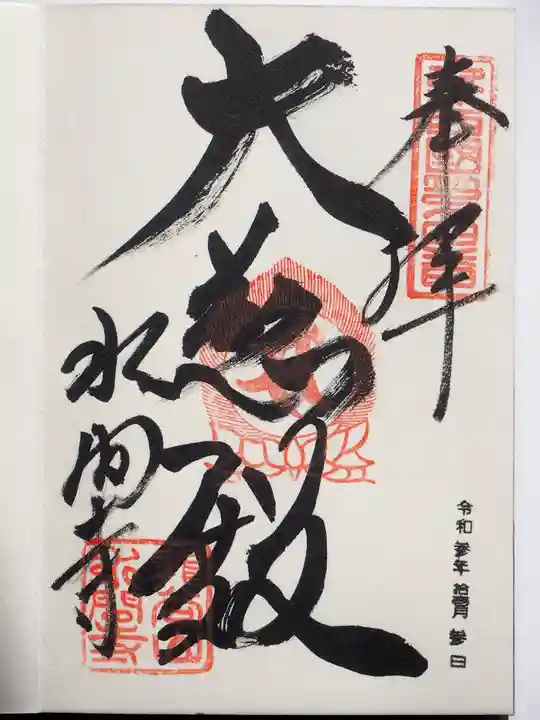 奉拝
大慈殿
水間寺
令和 参年 拾壱月 参日